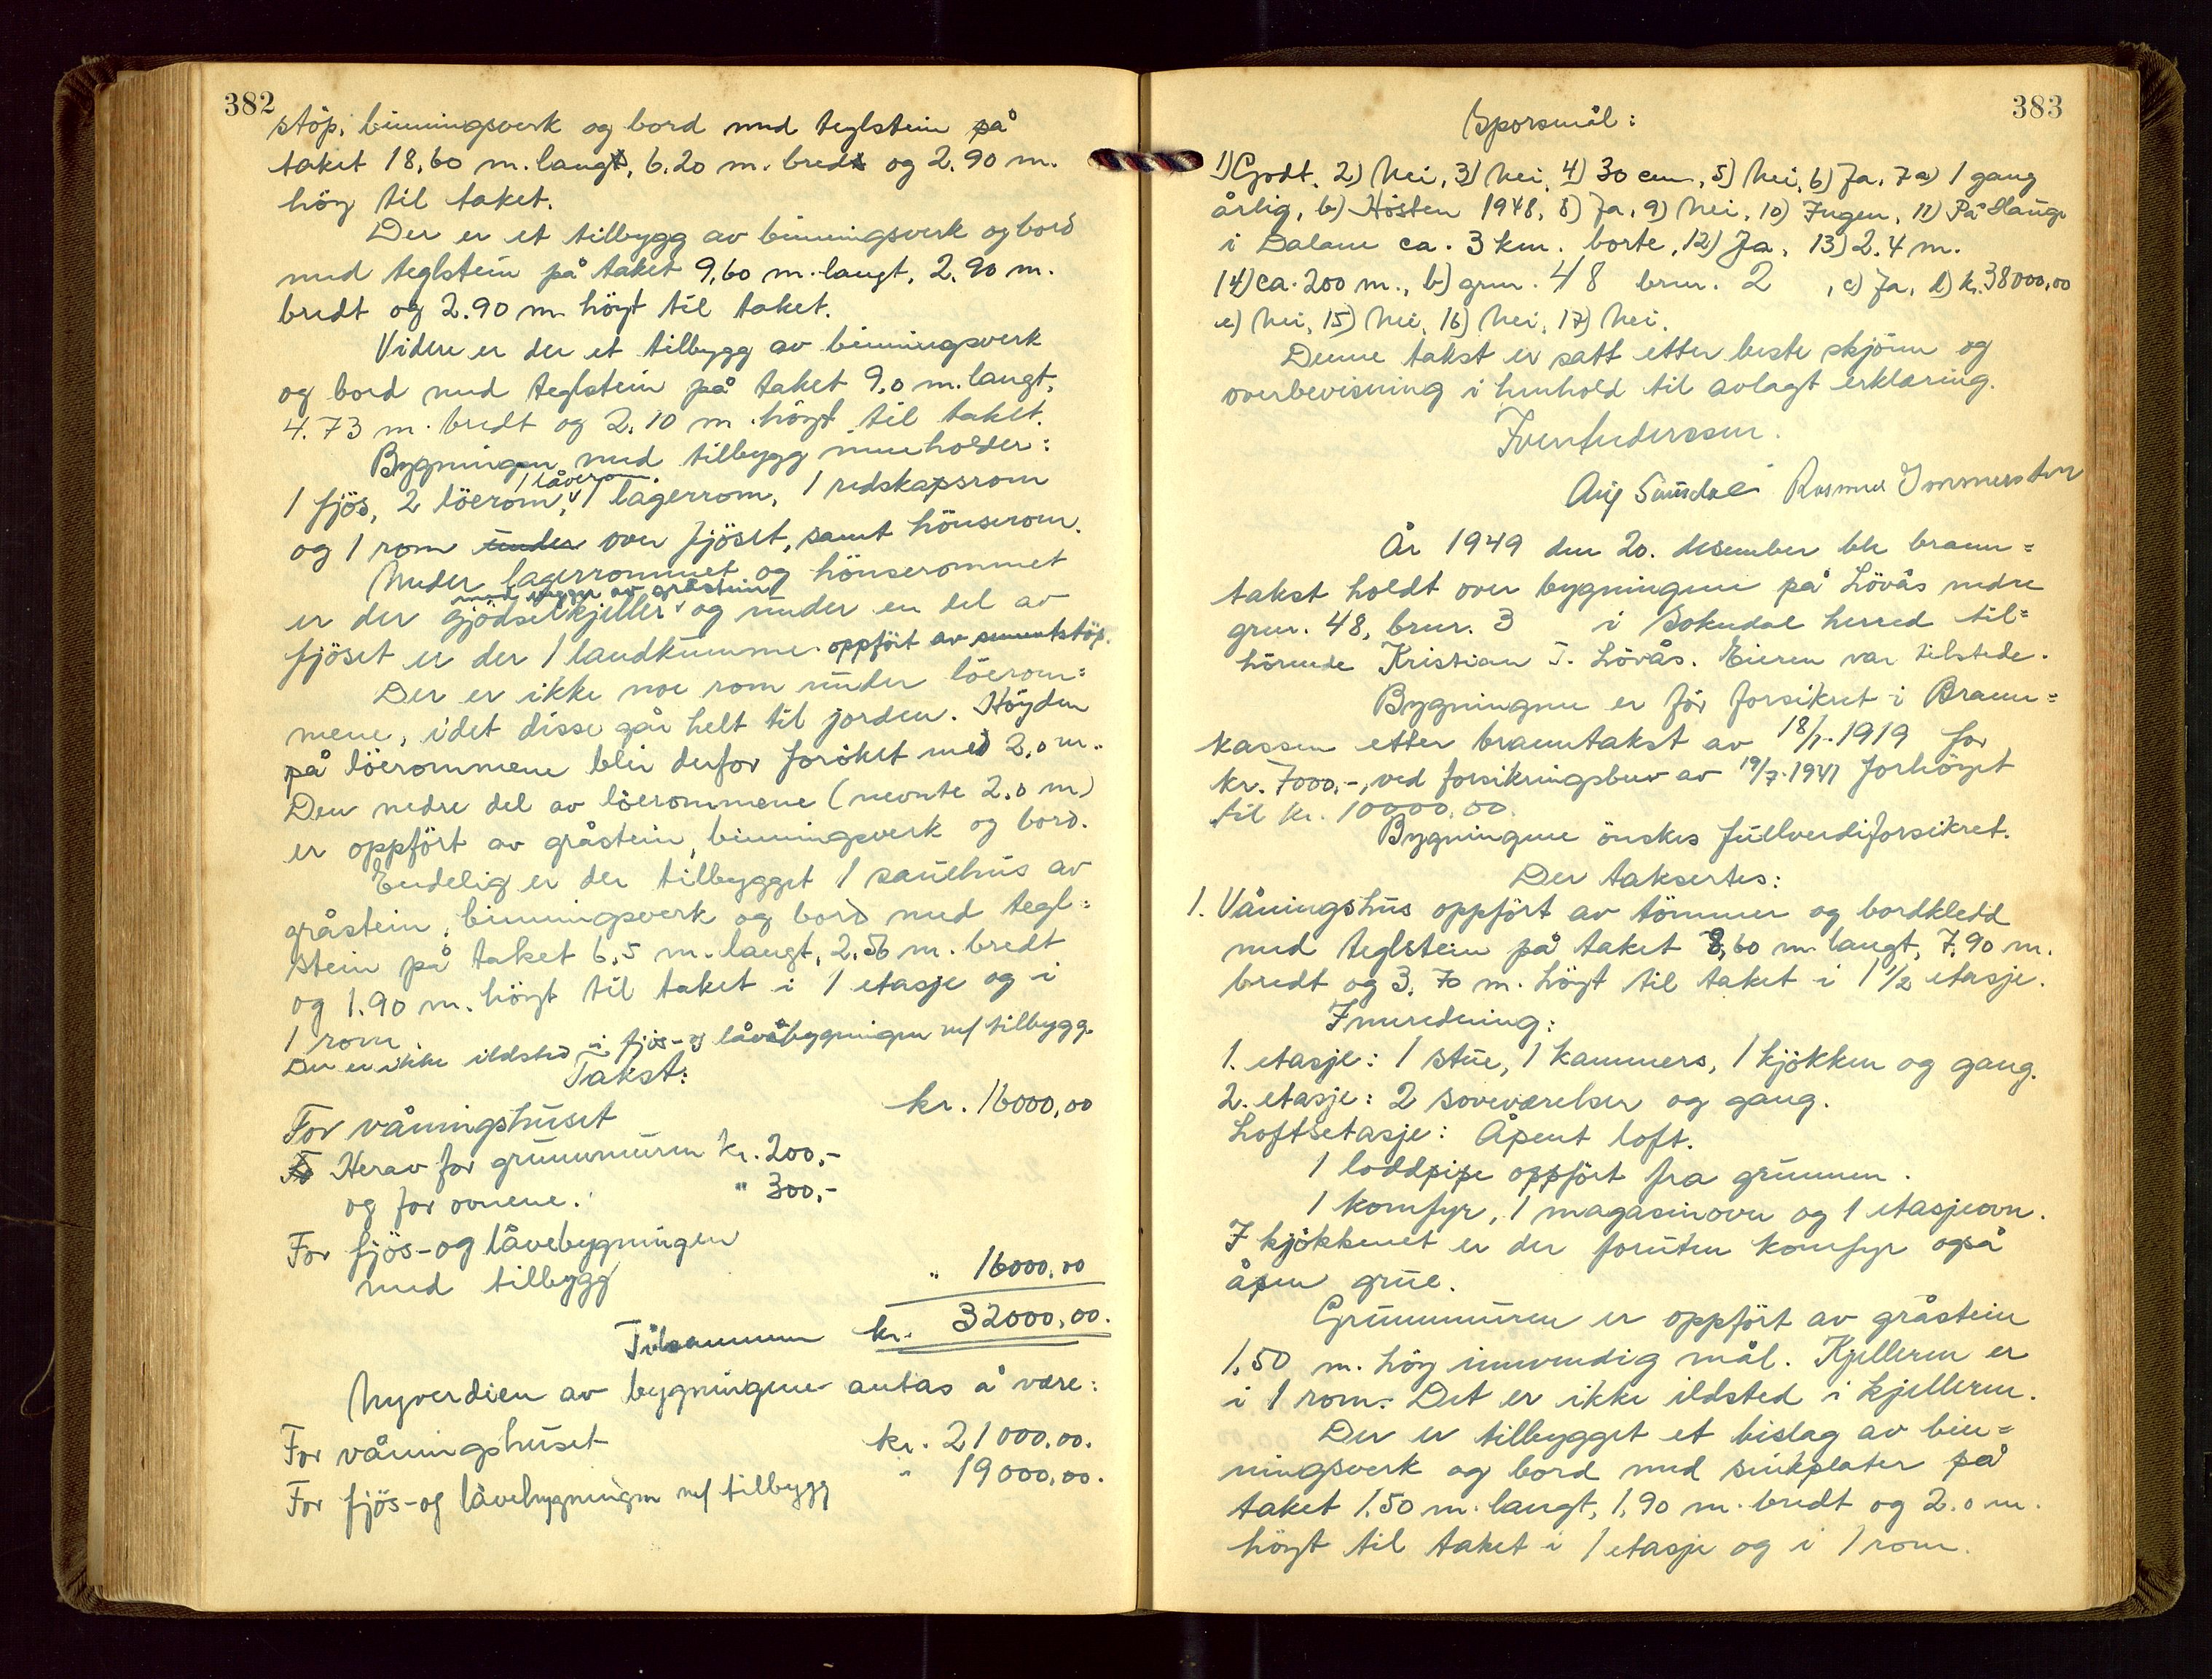 382
støp, binningsverk og bord med teglstein på
taket 18,60 m. langt, 6.20 m. bredt og 2.90 m.
høy til taket.
Der er et tilbygg av binningsverk og bord
med teglstein på taket 9,60 m. langt, 2.90 m.
bredt og 2.90 m høyt til taket.
Videre er der et tilbygg av binningsverk
og bord med teglstein på taket 9.0 m. langt,
4.73 m. bredt og 2.10 m. høyt til taket.
Bygningen med tilbygg inneholder:
1 låverom.
1 fjøs, 2 löerom, 1 lagerrom, 1 redskapsrom
og 1 rom under over fjöset, samt hönserom.
Under lagerrommet og hönserommet
med vegger av gråstein
er der gjödselkjeller og under en del av
fjöset er der 1 landkumme oppfört av sementstöp.
Der er ikke noe rom under löerom=
mene, idet disse går helt til jorden. Höyden
på löerommene blir derfor foröket med 2.0 m.
Den nedre del av löerommene (nevnte 2.0 m)
er oppfört av gråstein, binningsverk og bord.
Endelig er der tilbygget 1 sauehus av
gråstein, binningsverk og bord med tegl=
stein på taket 6,5 m. langt, 2,56 m. bredt
og 1.90 m. höyt til taket i 1 etasje og i
1 rom.
Der er ikke ildsted i fjös- og låvebygningen m/ tilbygg.
Takst:
For våningshuset kr. 16000,00
Herav for grunnmuren kr. 200,-
og for ovnene. " 300,-
For fjös- og låvebygningen
med tilbygg " 16000,00
Tilsammen kr. 32000,00.
Nyverdien av bygningene antas å være:
For våningshuset kr. 21000.00.
For fjös- og låvebygningen m/ tilbygg " 19000,00.
383
Spörsmål:
1) Godt, 2) Nei, 3) Nei, 4) 30 cm, 5) Nei, 6) Ja, 7 a) 1 gang
årlig, b) Hösten 1948, 8) Ja, 9) Nei, 10) Ingen, 11) På Hauge
i Dalane ca. 3 km. borte, 12) Ja, 13) 2.4 m.
14) ca. 200 m., b) gnr. 48 bnr. 2 , c) Ja, d) kr. 38000,00
e) Nei, 15) Nei, 16) Nei, 17) Nei.
Denne takst er satt etter beste skjönn og
overbevisning i henhold til avlagt erklæring.
Iver Andersson.
Aug Sundal Rasmus Immerstein
År 1949 den 20. desember ble brann=
takst holdt over bygningene på Lövås nedre
gnr. 48, bnr. 3 i Sokndal herred til=
hörende Kristian T. Lövås. Eieren var tilstede.
Bygningene er för forsikret i Brann=
kassen etter branntakst av 18/7. 1919 for
kr. 7000,-, ved forsikringsbev av 19/7. 1941 forhöyet
til kr. 10000.00.
Bygningene önskes fullverdiforsikret.
Der taksertes:
1. Våningshus oppfört av tömmer og bordkledd
med teglstein på taket 8,60 m langt, 7,90 m.
bredt og 3.70 m. höyt til taket i 1 1/2 etasje.
Innredning:
1. etasje: 1 stue, 1 kammers, 1 kjökken og gang.
2. etasje: 2 soveværelser og gang.
Loftsetasje: Åpent loft.
1 loddpipe oppfört fra grunnen.
1 komfyr, 1 magasinovn og 1 etasjeovn.
I kjökkenet er der foruten komfyr også
åpen grue.
Grunnmuren er oppfört av gråstein
1.50 m. höy innvendig mål. Kjelleren er
i 1 rom. Det er ikke ildsted i kjelleren.
Der er tilbygget et bislag av bin=
ningsverk og bord med sinkplater på
taket 1.50 m. langt, 1,90 m. bredt og 2.0 m.
höyt til taket i 1 etasje og i 1 rom.